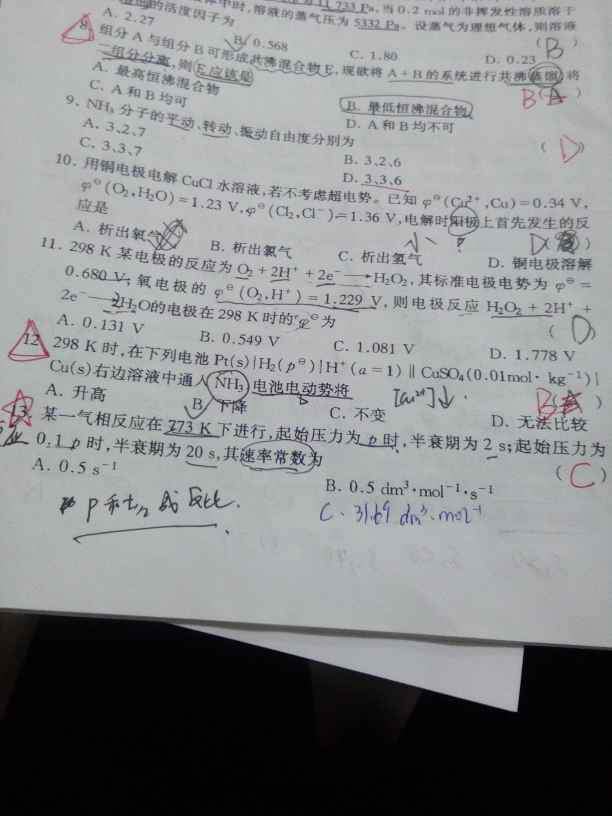 体中时,溶液的蒸气压为 5332 Pa。设蒸气为理想气体,则溶液
的活度因子为
11 733 Pa,当 0.2 mol 的非挥发性溶质溶于
A. 2.27
B. 0.568
C. 1.80
D. 0.23
( B )
组分 A 与组分 B 可形成共沸混合物 E,现欲将 A+B 的系统进行共沸蒸馏,将
二组分分离,则 E 应该是
B ( A )
A. 最高恒沸混合物
B. 最低恒沸混合物
C. A 和 B 均可
D. A 和 B 均不可
9. NH₃ 分子的平动、转动、振动自由度分别为
( D )
A. 3,2,7
B. 3,2,6
C. 3,3,7
D. 3,3,6
10. 用铜电极电解 CuCl 水溶液,若不考虑超电势。已知 φ⊖(Cu²⁺,Cu)=0.34 V,
φ⊖(O₂,H₂O)=1.23 V,φ⊖(Cl₂,Cl⁻)=1.36 V,电解时阳极上首先发生的反
应是
D
A. 析出氧气
B. 析出氯气
C. 析出氢气
D. 铜电极溶解
11. 298 K 某电极的反应为 O₂+2H⁺+2e⁻→H₂O₂,其标准电极电势为 φ⊖=
0.680 V;氧电极的 φ⊖(O₂,H⁺)=1.229 V,则电极反应 H₂O₂+2H⁺+
2e⁻→2H₂O的电极在 298 K 时的 φ⊖ 为
( D )
A. 0.131 V
B. 0.549 V
C. 1.081 V
D. 1.778 V
12. 298 K 时,在下列电池 Pt(s)|H₂(p⊖)|H⁺(a=1)‖CuSO₄(0.01mol·kg⁻¹)|
Cu(s)右边溶液中通入 NH₃,电池电动势将
[Cu²⁺]↓.
B
A. 升高
B. 下降
C. 不变
D. 无法比较
13. 某一气相反应在 273 K 下进行,起始压力为 p 时,半衰期为 2 s;起始压力为
0.1 p 时,半衰期为 20 s,其速率常数为
( C )
A. 0.5 s⁻¹
B. 0.5 dm³·mol⁻¹·s⁻¹
p 和 t₁/₂ 成反比.